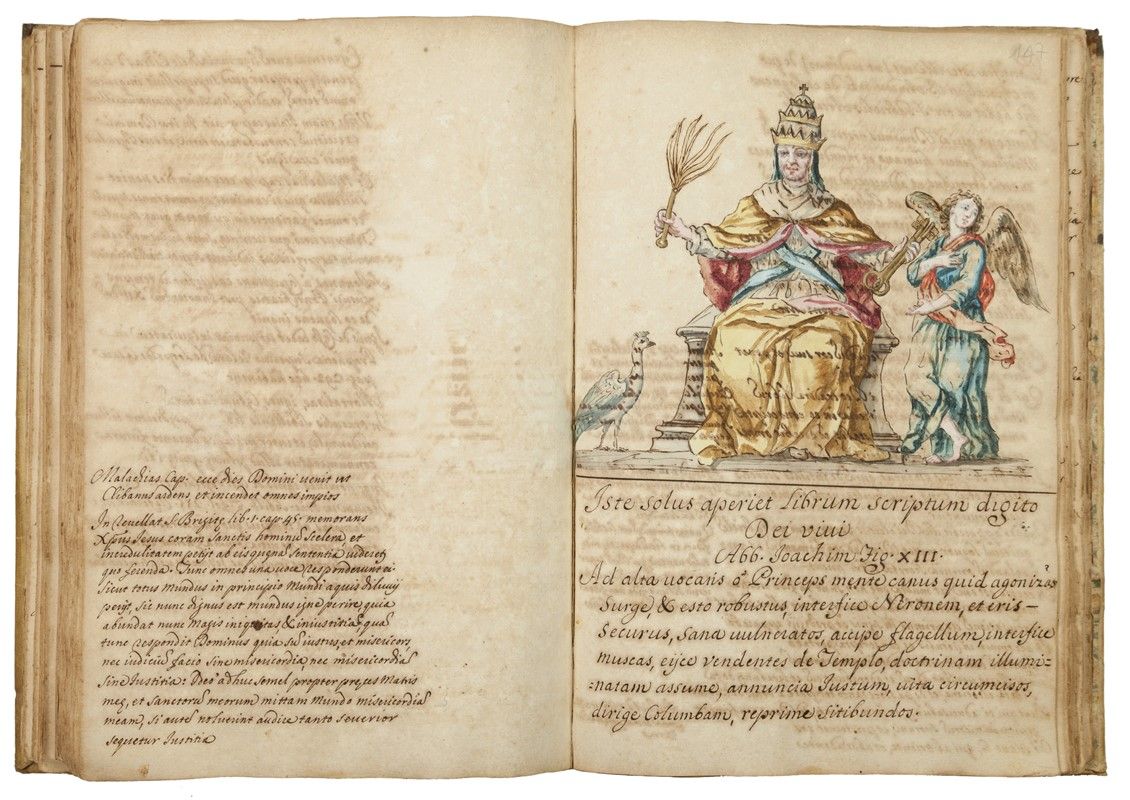 Malachias Cap. ecce dies Domini venit ut
Clibanus ardens, et incendet omnes impios
In Revellat S. Brigite lib. 1. cap. 45. memorans
Xpus Jesus coram Sanctis hominũ Scelera et
incredulitatem petijt ab eis qugna sententia videret
quo ferenda. Tunc omnes una voce responderunt ei
sicut totus Mundus in principio Mundi aquis diluuij
perijt, sic nunc dignus est mundus igne perire, quia
abundat nunc magis iniquitas & iniustitia, quã
tunc respondit Dominus quia sũ iustus, et misericors
nec iudiciũ facio sine misericordia, nec misericordiã
sine Justitia: Ideo adhuc semel propter preces Matris
meę, et Sanctorũ meorum mittam Mundo misericordiã
meam, si autẽ noluerint audire tanto severior
sequetur Justitia
147
Iste solus aperiet Librum scriptum digito
Dei viui
Abb. Ioachim Fig. XIII.
Ad alta vocaris ò Princeps mente canus quid agonizas
Surge, & esto robustus, interfice Neronem, et eris
securus, sana vulneratos, accipe flagellum, interfice
muscas, eijce vendentes de Templo, doctrinam illumi=
=natam assume, annuncia Iustum, vita circumcisos,
dirige Columbam, reprime sitibundos.